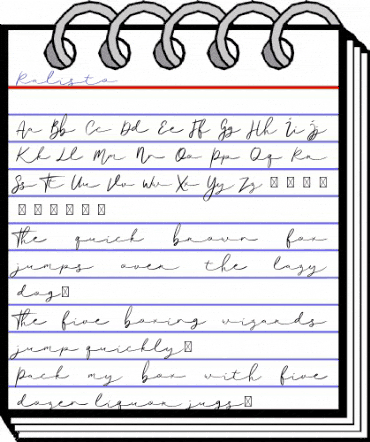 Ralista
Aa Bb Cc Dd Ee Ff Gg Hh Ii Jj
Kk Ll Mm Nn Oo Pp Qq Rr
Ss Tt Uu Vv Ww Xx Yy Zz
The quick brown fox
jumps over the lazy
dog
The five boxing wizards
jump quickly
Pack my box with five
dozen liquor jugs